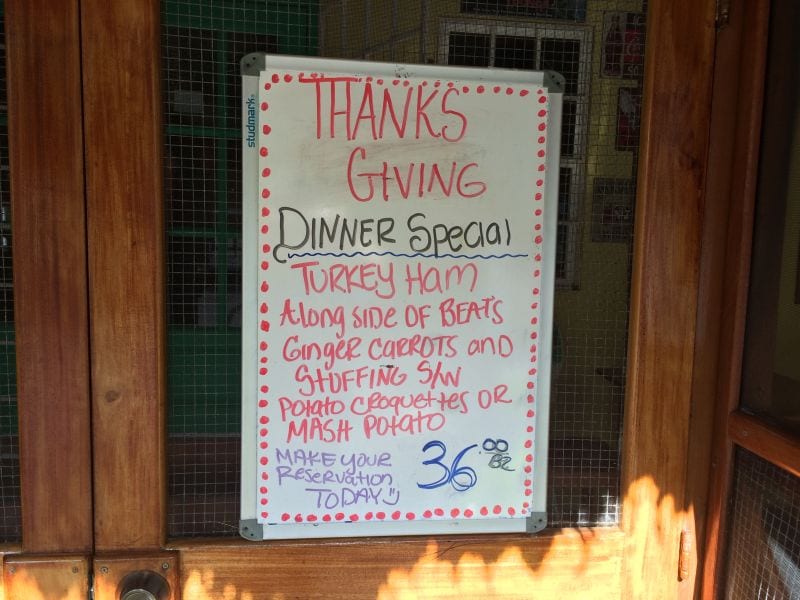 studmark
THANKS
GIVING
DINNER Special
TURKEY HAM
Along side OF BEATS
Ginger CARROTS and
STUFFING S/W
POTATO CROQUETTES OR
MASH POTATO
MAKE YOUR
Reservation
TODAY
36.00
BZ